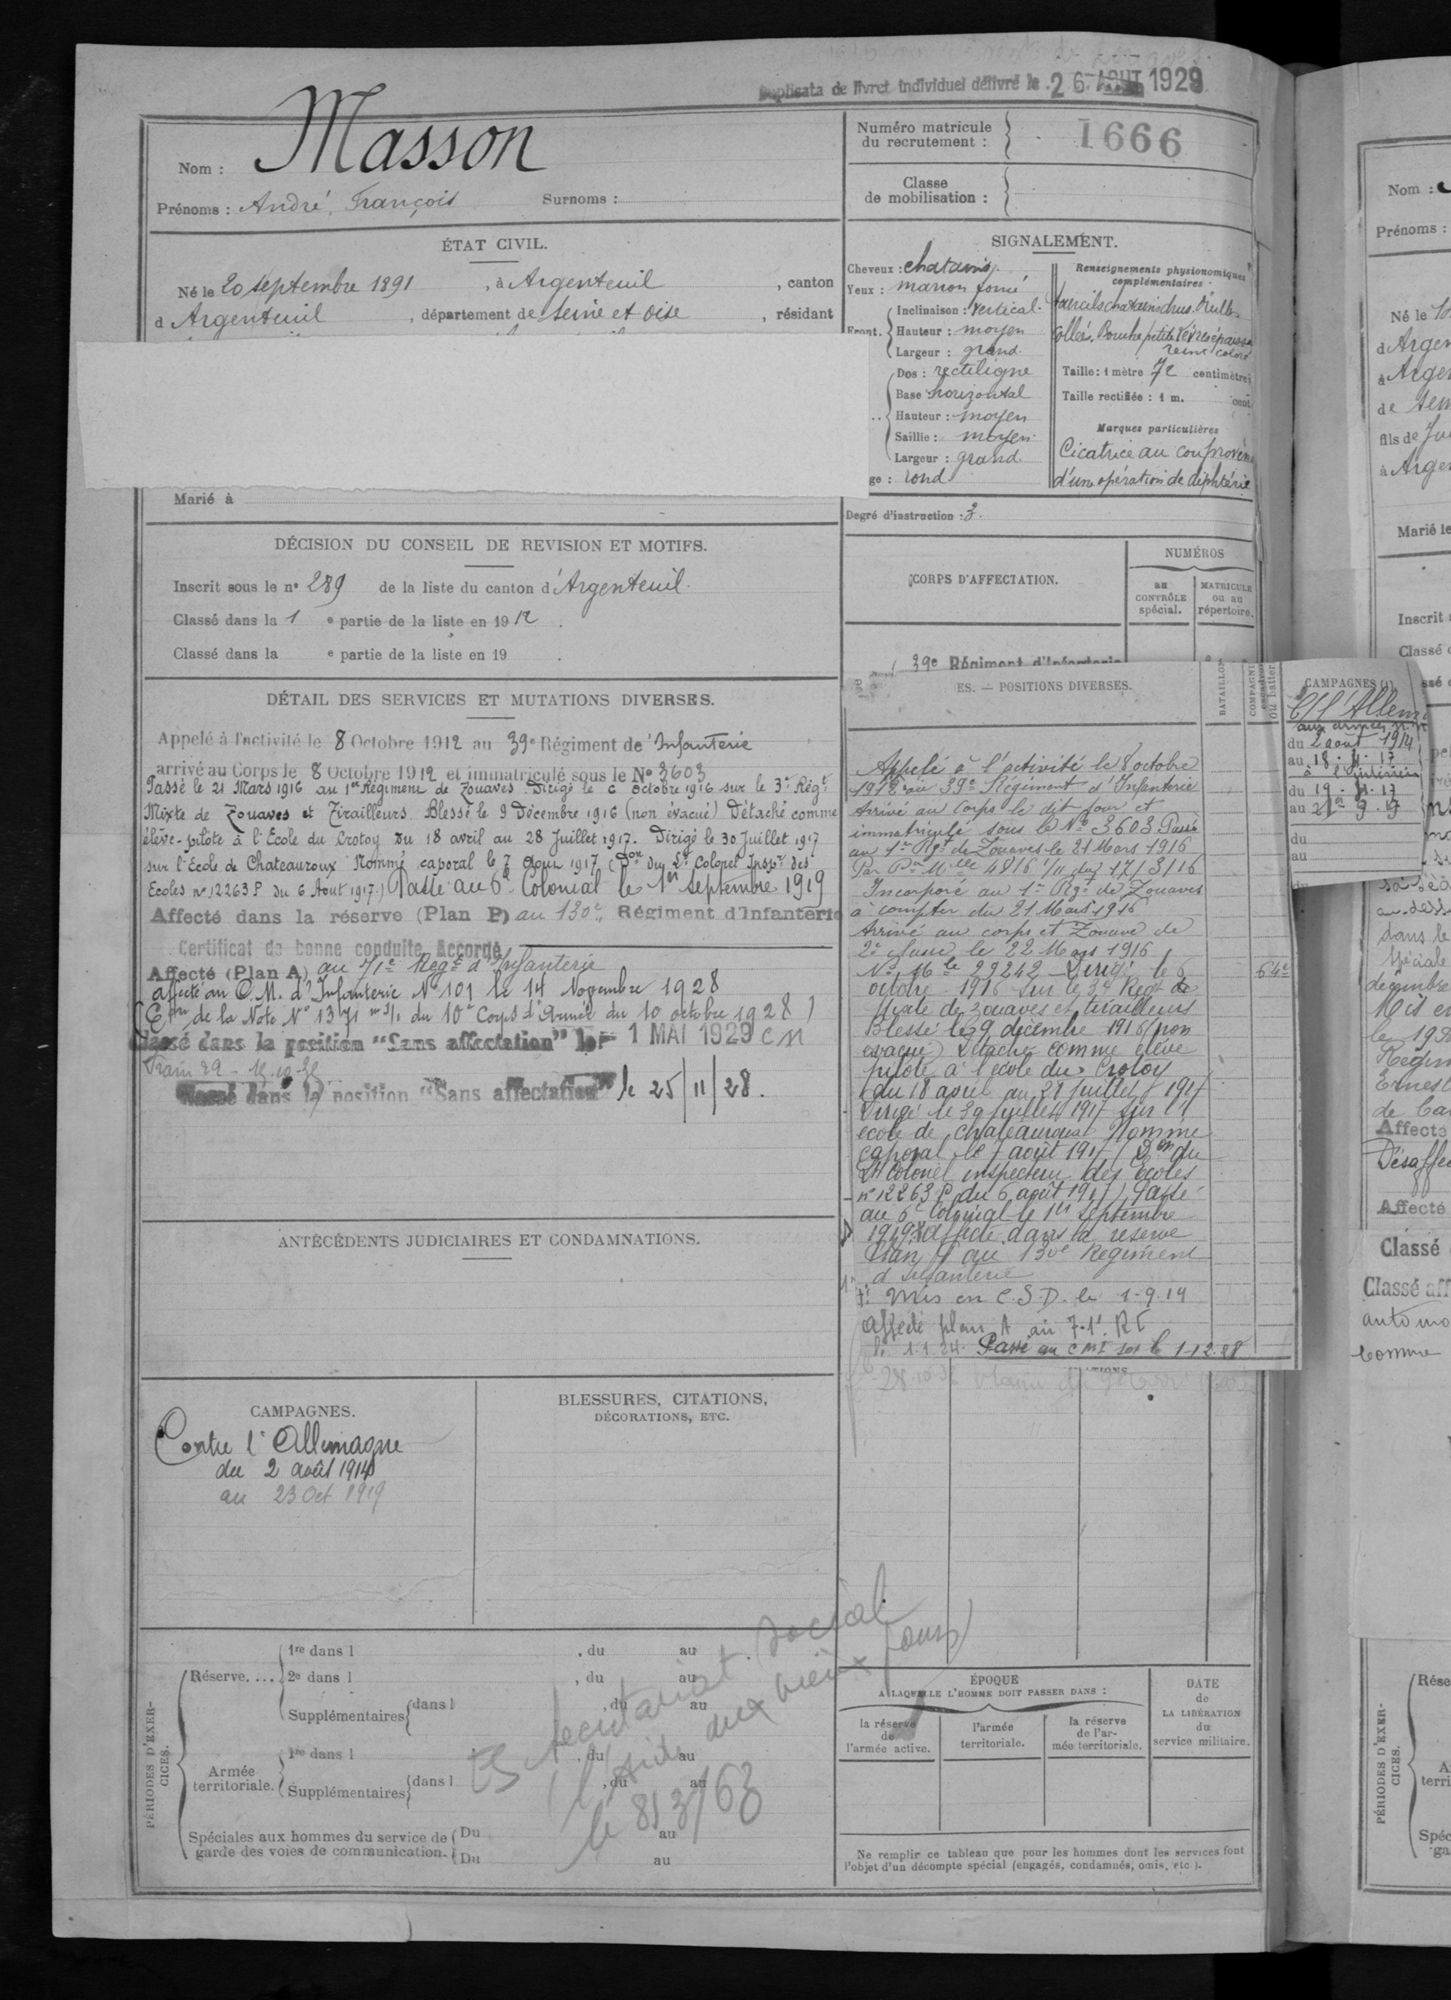 Duplicata de livret individuel délivré le 26 AOUT 1929
Nom : Masson
Prénoms : André, François Surnoms :
Numéro matricule du recrutement : 1666
Classe de mobilisation :
ÉTAT CIVIL.
Né le 20 septembre 1891, à Argenteuil, canton
d Argenteuil, département de Seine et Oise, résidant
Marié à
SIGNALEMENT.
Cheveux : chatains
Yeux : marron foncé
Front. Inclinaison : vertical.
Hauteur : moyen
Largeur : grand
Dos : rectiligne
Base horizontal
Hauteur : moyen
Saillie : moyen
Largeur : grand.
ge : rond
Renseignements physionomiques complémentaires :
collés. Bouche petite
Taille : 1 mètre 72 centimètres
Taille rectifiée : 1 m. cent
Marques particulières
Cicatrice au cou
d'une opération de diphtérie
Degré d'instruction : 3.
DÉCISION DU CONSEIL DE REVISION ET MOTIFS.
Inscrit sous le n° 289 de la liste du canton d'Argenteuil.
Classé dans la 1 e partie de la liste en 1912.
Classé dans la e partie de la liste en 19 .
CORPS D'AFFECTATION.
NUMÉROS
au CONTRÔLE spécial.
MATRICULE ou au répertoire.
39e Régiment d'Infanterie
DÉTAIL DES SERVICES ET MUTATIONS DIVERSES.
Appelé à l'activité le 8 Octobre 1912 au 39e Régiment de'Infanterie
arrivé au Corps le 8 Octobre 1912 et immatriculé sous le No 3603
Passé le 21 Mars 1916 au 1er Régiment de Zouaves Dirigé le 6 octobre 1916 sur le 3e Régt
Mixte de Zouaves et Tirailleurs. Blessé le 9 Décembre 1916 (non évacué) Détaché comme
élève-pilote à l'Ecole du Crotoy du 18 avril au 28 Juillet 1917. Dirigé le 30 Juillet 1917
sur l'Ecole de Chateauroux Nommé caporal le 7 Aout 1917 (Don du Lt Colonel Inspr des
Ecoles no 12263 P du 6 Aout 1917) Passé au 6e Colonial le 1er septembre 1919
Affecté dans la réserve (Plan P) au 130e Régiment d'Infanterie
Certificat de bonne conduite Accordé
Affecté (Plan A) au 71e Regt d'Infanterie
affecté au C.M. d'Infanterie No 101 le 14 Novembre 1928
de la Note No du 10e Corps d'Armée du 10 octobre 1928)
Classé dans la position "Sans affectation" le 1 MAI 1929 CM
Classé dans la position "Sans affectation" le 25/11/28.
ES. — POSITIONS DIVERSES.
BATAILLON
COMPAGNIE
ou batter
Appelé à l'activité le 8 octobre
1912 au 39e Régiment d'Infanterie
Arrivé au Corps le dit jour et
immatriculé sous le No 3603 Passé
au 1er Rgt de Zouaves le 21 Mars 1916
Par Don Mlle 4816 1/11 du 17/3/16
Incorporé au 1er Rgt de Zouaves
à compter du 21 Mars 1916
Arrivé au corps et Zouave de
2e classe le 22 Mars 1916
No Mle 29242 Dirigé le 6
octobre 1916 sur le 3e Regt de
Mixte de zouaves et tirailleurs
Blessé le 9 décembre 1916 (non
évacué) Détaché comme élève
pilote à l'école du Crotoy
du 18 avril au 28 juillet 1917
Dirigé le 30 juillet 1917 sur l'
école de chateauroux Nommé
caporal le 7 août 1917 (Don du
Lt Colonel inspecteur des Ecoles
no 12263 P du 6 août 1917) Passé
au 6e Colonial le 1er septembre
1919 affecté dans la réserve
Plan P au 130e Régiment
d'Infanterie
Mis en C.S.D. le 1-9-19
affecté plan A au 71e RI
le 1.1.24. Passé au CMI 101 le 1-12-28
64e
CAMPAGNES (1)
C/ l'Allem
aux armées
du 2 août 1914
au 18-4-17
à l'intérieur
du 19-4-17
au
du
au
ANTÉCÉDENTS JUDICIAIRES ET CONDAMNATIONS.
CAMPAGNES.
Contre l'Allemagne
du 2 août 1914
au 23 Oct 1919
BLESSURES, CITATIONS, DÉCORATIONS, ETC.
PÉRIODES D'EXERCICES.
Réserve. ... 1re dans l , du au
2e dans l , du au
Supplémentaires dans l , du au
Armée territoriale. 1re dans l , du au
Supplémentaires dans l , du au
Spéciales aux hommes du service de garde des voies de communication. Du au
Du au
Secrétariat Social
(l'Aide aux vieux jours)
le 8/3/63
ÉPOQUE
A LAQUELLE L'HOMME DOIT PASSER DANS :
la réserve de l'armée active.
l'armée territoriale.
la réserve de l'armée territoriale.
DATE de LA LIBÉRATION du service militaire.
Ne remplir ce tableau que pour les hommes dont les services font
l'objet d'un décompte spécial (engagés, condamnés, omis, etc.).
Nom :
Prénoms :
Né le
d'Argen
à Argen
de Sein
fils de Ju
à Argen
Marié le
Inscrit
Classé
Affecté
Désaffec
Affecté
Classé
Classé aff
automo
comme
PÉRIODES D'EXERCICES.
Rése
terri
Spéc
ga